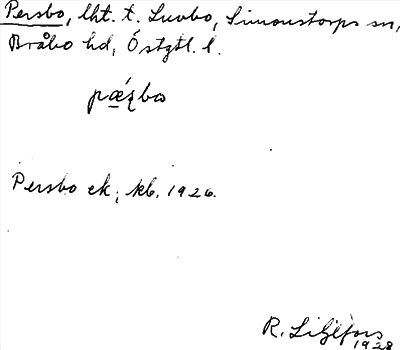 Persbo, lht. t. Luvbo, Simonstorps sn,
Bråbo hd, Östgtl. l.
Persbo ek; kb. 1926.
R. Liljefors
1928